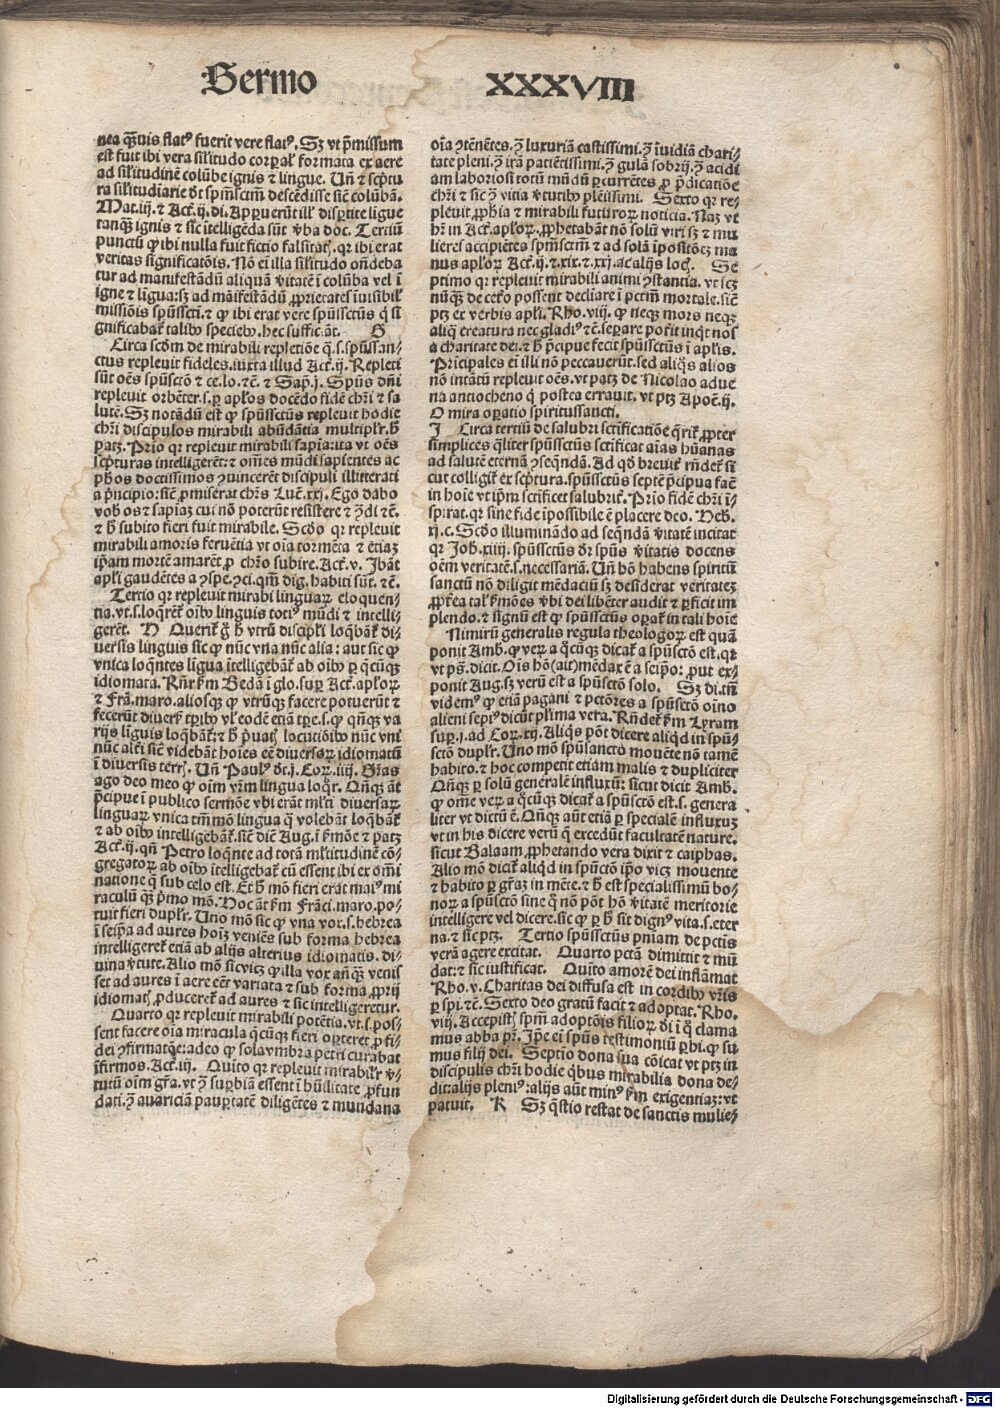 Sermo XXXVIII
nea q̃uis flatꝰ fuerit vere flatꝰ. Sꝫ vt p̃missum
est fuit ibi vera sil'itudo corꝑal' formata ex aere
ad sil'itudinẽ colũbe ignis ⁊ lingue. Uñ ⁊ scp̃tu
ra sil'itudiarie dr̃ spm̃sctm̃ descẽdisse sic̃ colũbã.
Mat. iij. ⁊ Act̃. ij. di. Apparuerũt ill' disꝑtite ligue
tanq̃ʒ ignis ⁊ sic̃ itelligẽda sũt ꝟba doc. Tertiũ
punctũ ꝙ ibi nulla fuit fictio falsitat̃. qꝛ ibi erat
veritas significatõis. Nõ ei illa sil'itudo oñdeba
tur ad manifestãdũ aliquã ꝟitatẽ i colũba vel i
igne ⁊ ligua: sꝫ ad mãifestãdũ ꝓprietates iuisibil'
missiõis spũssct̃i. ⁊ ꝙ ibi erat vere spũssctũs q̃ si
gnificabat̃ talibꝰ speciebꝰ. hec suffic̃ãt. G
Circa scd̃m de mirabili repletiõe q̃. s. spũssan⸗
ctus repleuit fideles. iuxta illud Act̃. ij. Repleti
sũt oẽs spũsctõ ⁊ ce. lo. ⁊c̃. ⁊ Sap̃. j. Spũs dñi
repleuit orbẽ ter. s. ꝑ apl'os docẽdo fidẽ chr̃i ⁊ sa
lutẽ. Sꝫ notãdũ est ꝙ spũssctũs repleuit hodie
chr̃i discipulos mirabili abũdãtia multipl'r. h̃
patꝫ. Prio qꝛ repleuit mirabili sapia: ita vt oẽs
scp̃turas intelligerẽt: ⁊ om̃es mũdi sapientes ac
ph̃os doctissimos ꝯuincerẽt discipuli illitterati
a p̃ncipio: sic̃ ꝓmiserat chr̃s Luc̃. xxj. Ego dabo
vobꝰ os ⁊ sapiaʒ cui nõ poterũt resistere ⁊ ꝯdi ⁊c̃.
⁊ h̃ subito fieri fuit mirabile. Scd̃o qꝛ repleuit
mirabili amoris feruẽtia vt oia tormẽta ⁊ etiaʒ
ip̃am mortẽ amarẽt ꝓ chr̃o subire. Act̃. v. Ibãt
apl'i gaudẽtes a ꝯspe. ꝯci. qm̃ dig. habiti sũt. ⁊c̃.
Tertio qꝛ repleuit mirabi linguaꝝ eloquen⸗
tia. vt. s. loq̃rẽt̃ oibꝰ linguis totiꝰ mũdi ⁊ intelli⸗
gerẽt. H Querit̃ g̃ h̃ vtrũ discipl'i loq̃bãt̃ di⸗
uersis linguis sic ꝙ nũc vna nũc alia: aut sic ꝙ
vnica loq̃ntes ligua itelligebãt̃ ab oibꝰ ꝑ q̃cũqꝫ
idiomata. Rñr ẜm Bedã i glo. suꝑ Act̃. apl'oꝝ
⁊ Frã. maro. aliosqꝫ ꝙ vtrũqꝫ facere potuerũt ⁊
fecerũt diuers̃ tꝑibꝰ vl' eodẽ etiã tꝑe. s. ꝙ qñqꝫ va
rijs liguis loq̃bãt̃: ⁊ h̃ p̃uat̃ locutiõibꝰ nũc vni
nũc alt̃i sic̃ videbãt hoies eẽ diuersoꝝ idiomatũ
i diuersis terr̃. Uñ Paulꝰ dt̃. j. Coꝝ. iiij. Gr̃as
ago deo meo ꝙ oim vr̃m lingua loq̃r. Qñqꝫ ãt
p̃cipue i publico sermõe vbi erãt ml'ti diuersaꝝ
linguaꝝ vnica tm̃ mõ lingua q̃ volebãt loq̃bãt̃
⁊ ab oibꝰ intelligebãt̃. sic̃ dic̃ Aug. i ẜmõe ⁊ patꝫ
Act̃. ij. qñ Petro loq̃nte ad totã ml'titudinẽ cõ⸗
gregatoꝝ ab oibꝰ itelligebat̃ cũ essent ibi ex om̃i
natione q̃ sub celo est. Et h̃ mõ fieri erat maiꝰ mi
raculũ q̃ʒ p̃mo mõ. Hoc ãt ẜm Frãci. maro. po⸗
tuit fieri dupl'r. Uno mõ sic ꝙ vna vox. s. hebrea
i seip̃a ad aures hoiʒ veniẽs sub forma hebrea
intelligeret̃ etiã ab alijs alterius idiomatis. di⸗
uina ꝟtute. Alio mõ sic vicꝫ ꝙ illa vox añqʒ venis
set ad aures i aere eẽt variata ⁊ sub forma ꝓprij
idiomat̃ ꝓduceret̃ ad aures ⁊ sic intelligeretur.
Quarto qꝛ repleuit mirabili potẽtia. vt. s. pos⸗
sent facere oia miracula q̃cũqꝫ fieri oꝑteret ꝓ fi⸗
dei ꝯfirmatiõe: adeo ꝙ sola vmbra petri curabat
ifirmos. Act̃. iij. Quito qꝛ repleuit mirabil'r ꝟ⸗
tutũ oim gr̃a. vt ꝯ̃ suꝑbiã essent i hũilitate ꝓfun
dati. ꝯ̃ auariciã pauꝑtatẽ diligẽtes ⁊ mundana
oia ꝯtẽnẽtes. ꝯ̃ luxuriã castissimi. ꝯ̃ iuidiã chari⸗
tate pleni. ꝯ̃ irã patiẽtissimi. ꝯ̃ gulã sobrij. ꝯ̃ acidi
am laboriosi totũ mũdũ ꝑcurrẽtes ꝓ p̃dicatiõe
chr̃i ⁊ sic ꝯ̃ vitia ꝟtutibꝰ plẽissimi. Sexto qꝛ re⸗
pleuit ꝓph̃ia ⁊ mirabili futuroꝝ noticia. Naʒ vt
hr̃ in Act̃. apl'oꝝ. ꝓphetabãt nõ solũ viri sꝫ ⁊ mu
lieres accipiẽtes spm̃sctm̃ ⁊ ad solã ipositõeʒ ma
nus apl'oꝝ Act̃. ij. ⁊. xix. ⁊. xxj. ac alijs loc̃. Se
ptimo qꝛ repleuit mirabili animi ꝯstantia. vt scꝫ
nũq̃ʒ de cet̃o possent decliare i pctm̃ mortale. sic̃
ptꝫ ex verbis apl'i. Rho. viij. ꝙ neqꝫ mors neqꝫ
aliq̃ creatura nec gladiꝰ ⁊c̃. seꝑare pot̃it inq̃t nos
a charitate dei. ⁊ h̃ p̃cipue fecit spũssctũs i apl'is.
Prĩcipales ei illi nõ peccauerũt. sed aliq̃s alios
nõ intãtũ repleuit oẽs. vt patꝫ de Nicolao adue
na antiocheno q̃ postea errauit. vt ptꝫ Apoc̃. ij.
O mira oꝑatio spiritussancti.
J Circa tertiũ de salubri sctificatiõe q̃rit̃ ꝓpter
simplices q̃liter spũssctũs sctificat aias hũanas
ad salutẽ eternã ꝯseq̃ndã. Ad qd̃ breuit̃ rñdet̃ si
cut colligit̃ ex scp̃tura. spũssctũs septẽ p̃cipua fac̃
in hoie vt ip̃m sctificet salubrit̃. Prio fidẽ chr̃i i⸗
spirat. qꝛ sine fide ipossibile ẽ placere deo. Heb̃.
xj. c. Scd̃o illuminãdo ad seq̃ndã ꝟitatẽ incitat
qꝛ Joh̃. xiiij. spũssctũs dr̃ spũs ꝟitatis docens
oẽm veritatẽ. s. necessariã. Uñ hõ habens spiritũ
sanctũ nõ diligit mẽdaciũ sꝫ desiderat veritateʒ
ꝓpt̃ea tal' ẜmões ꝟbi dei libẽter audit ⁊ ꝑficit im
plendo. ⁊ signũ est ꝙ spũssctũs oꝑat̃ in tali hoie
Nimirũ generalis regula theologoꝝ est quã
ponit Amb. ꝙ veꝝ a q̃cũqꝫ dicat̃ a spũsctõ est. qꝛ
vt ps̃. dicit. Oĩs hõ (ait) mẽdax ẽ a seip̃o: ꝓut ex⸗
ponit Aug. sꝫ verũ est a spũsctõ solo. Sꝫ di. tñ
videmꝰ ꝙ etiã pagani ⁊ pctõres a spũsctõ oĩno
alieni sepiꝰ dicũt pl'ima vera. Rñdet̃ ẜm Lyram
suꝑ. j. ad Coꝝ. xij. Aliq̃s põt dicere aliq̃d in spũ⸗
sctõ dupl'r. Uno mõ spũsancto mouẽte nõ tamẽ
habito. ⁊ hoc competit etiam malis ⁊ dupliciter
Qñqꝫ ꝑ solũ generalẽ influxũ: sicut dicit Amb.
ꝙ om̃e veꝝ a q̃cũqꝫ dicat̃ a spũsctõ est. s. genera
liter vt dictũ ẽ. Qñqꝫ aũt etiã ꝑ specialẽ influxuʒ
vt in his dicere verũ q̃ excedũt facultatẽ nature.
sicut Balaam ꝓphetando vera dixit ⁊ caiphas.
Alio mõ dicit̃ aliq̃d in spũctõ ip̃o vicꝫ mouente
⁊ habito ꝑ gr̃aʒ in mẽte. ⁊ h̃ est specialissimũ bo⸗
noꝝ a spũsctõ sine q̃ nõ põt hõ ꝟitatẽ meritorie
intelligere vel dicere. sic ꝙ ꝑ h̃ sit dignꝰ vita. s. eter
na. ⁊ sic ptꝫ. Tertio spũssctũs pniam de pctĩs
verã agere excitat. Quarto pctã dimittit ⁊ mũ
dat: ⁊ sic iustificat. Quito amorẽ dei inflãmat
Rho. v. Charitas dei diffusa est in cordibꝰ vr̃is
ꝑ spi. ⁊c̃. Sexto deo gratũ facit ⁊ adoptat. Rho.
viij. Accepist̃ spm̃ adoptõis filioꝝ di i q̃ clama
mus abba pr̃. Ip̃e ei spũs testimoniũ ꝑhi. ꝙ su
mus filij dei. Septio dona sua cõicat vt ptꝫ in
discipulis chr̃i hodie q̃bus mirabilia dona de⸗
dit: alijs pleniꝰ: alijs aũt minꝰ ẜm exigentiaʒ: vt
patuit. K Sꝫ q̃stio restat de sanctis mulie⸗
Digitalisierung gefördert durch die Deutsche Forschungsgemeinschaft - DFG